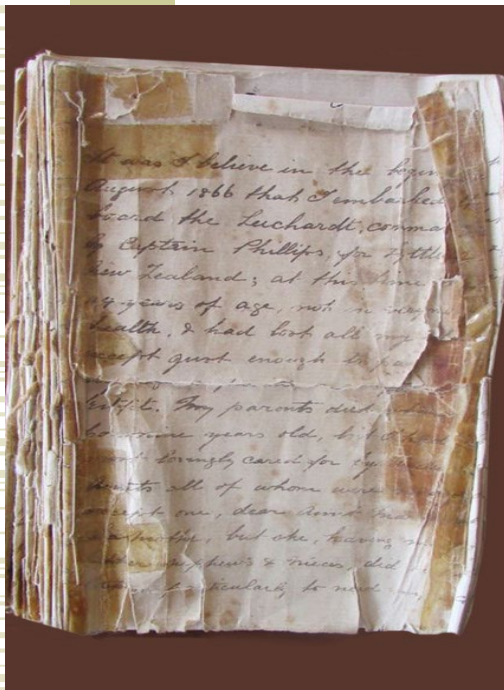 It was I believe in the begin
August 1866 that I embarked
board the Luchardt, comma
by Captain Phillips, for Lyttle
New Zealand; at this time
24 years of age, not in very
health, & had lost all my
except just enough to pa
outfit. My parents died when
nine years old, but I had
lovingly cared for by
Aunts all of whom were
except one, dear Aunt Ma
a mother, but she, having
other nephews & nieces, did
particularly to need